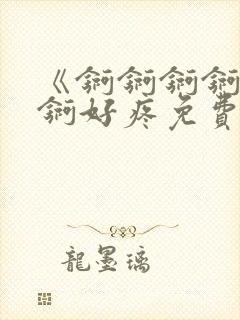 《锕锕锕锕
锕好疼免費
龍墨璃